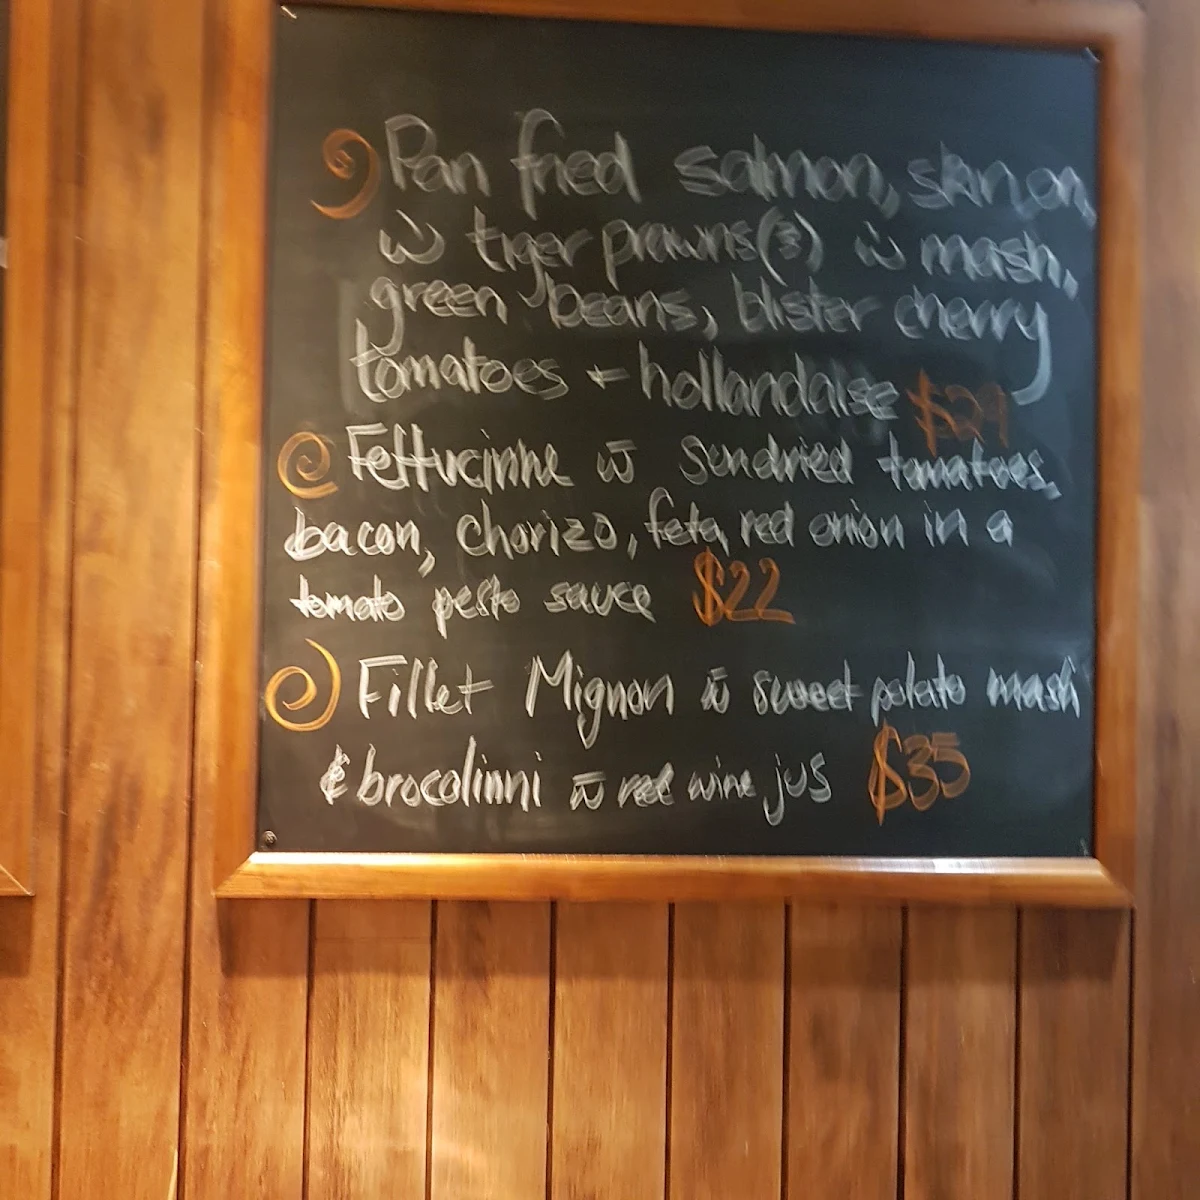 Pan fried salmon, skin on,
w̄ tiger prawns (3) w̄ mash,
green beans, blister cherry
tomatoes + hollandaise $29
Fettucinne w̄ Sundried tomatoes,
bacon, chorizo, feta, red onion in a
tomato pesto sauce $22
Fillet Mignon w̄ sweet potato mash
& brocolinni w̄ red wine jus $35